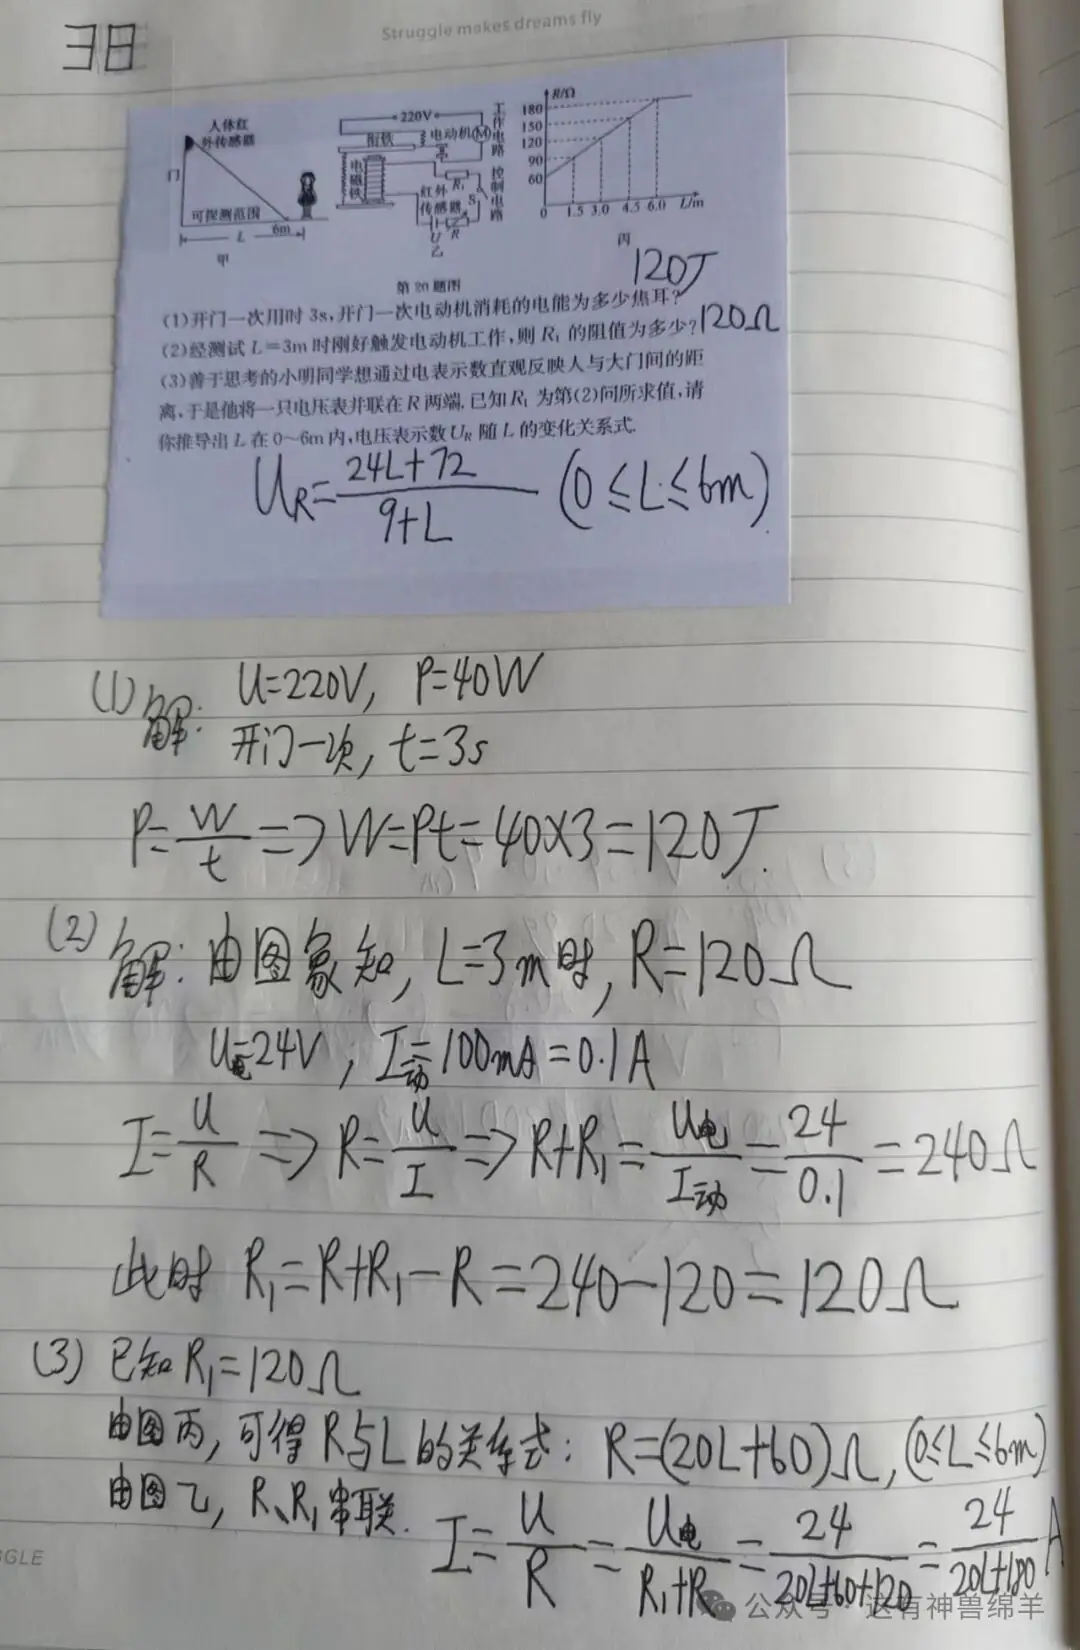 Struggle makes dreams fly
38
人体红
外传感器
门
可探测范围
6m
L
甲
220V
衔铁
电动机
M
工作电路
电磁铁
R₁
红外
传感器
S
控制电路
U
R
乙
R/Ω
180
150
120
90
60
0 1.5 3.0 4.5 6.0 L/m
丙
第20题图
120J
(1)开门一次用时3s,开门一次电动机消耗的电能为多少焦耳?
(2)经测试L=3m时刚好触发电动机工作,则R₁的阻值为多少? 120Ω
(3)善于思考的小明同学想通过电表示数直观反映人与大门间的距
离,于是他将一只电压表并联在R两端.已知R₁为第(2)问所求值,请
你推导出L在0~6m内,电压表示数U_R随L的变化关系式.
U_R=(24L+72)/(9+L) (0≤L≤6m)
(1)解: U=220V, P=40W
开门一次, t=3s
P=W/t => W=Pt=40×3=120J.
(2)解:由图象知, L=3m时, R=120Ω
U电=24V, I动=100mA=0.1A
I=U/R => R=U/I => R+R₁=U电/I动=24/0.1=240Ω
此时 R₁=R+R₁-R=240-120=120Ω
(3)已知R₁=120Ω
由图丙,可得R与L的关系式: R=(20L+60)Ω, (0≤L≤6m)
由图乙, R、R₁串联.
I=U/R=U电/(R₁+R)=24/(20L+60+120)=24/(20L+180)A
GGLE
公众号·这有神兽绵羊